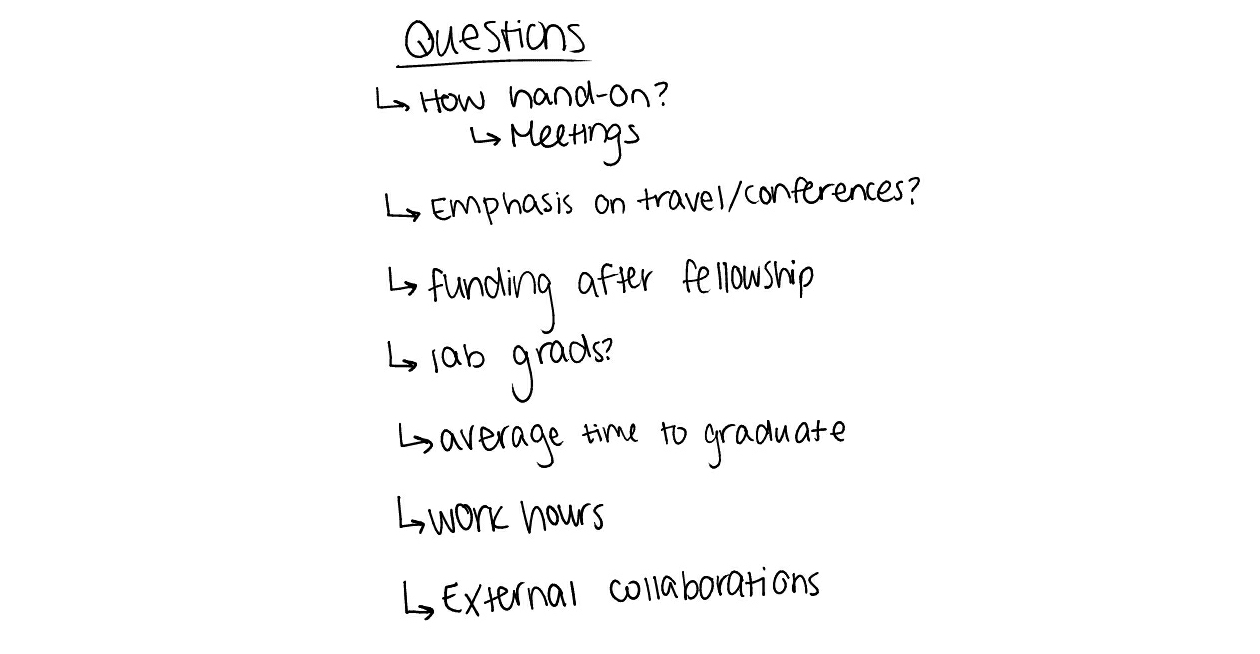 Questions
↳ How hand-on?
↳ Meetings
↳ Emphasis on travel/conferences?
↳ funding after fellowship
↳ lab grads?
↳ average time to graduate
↳ work hours
↳ External collaborations